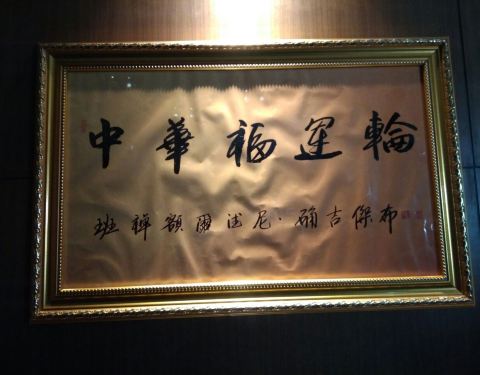 中華福運輪
班禅額爾德尼·确吉傑布